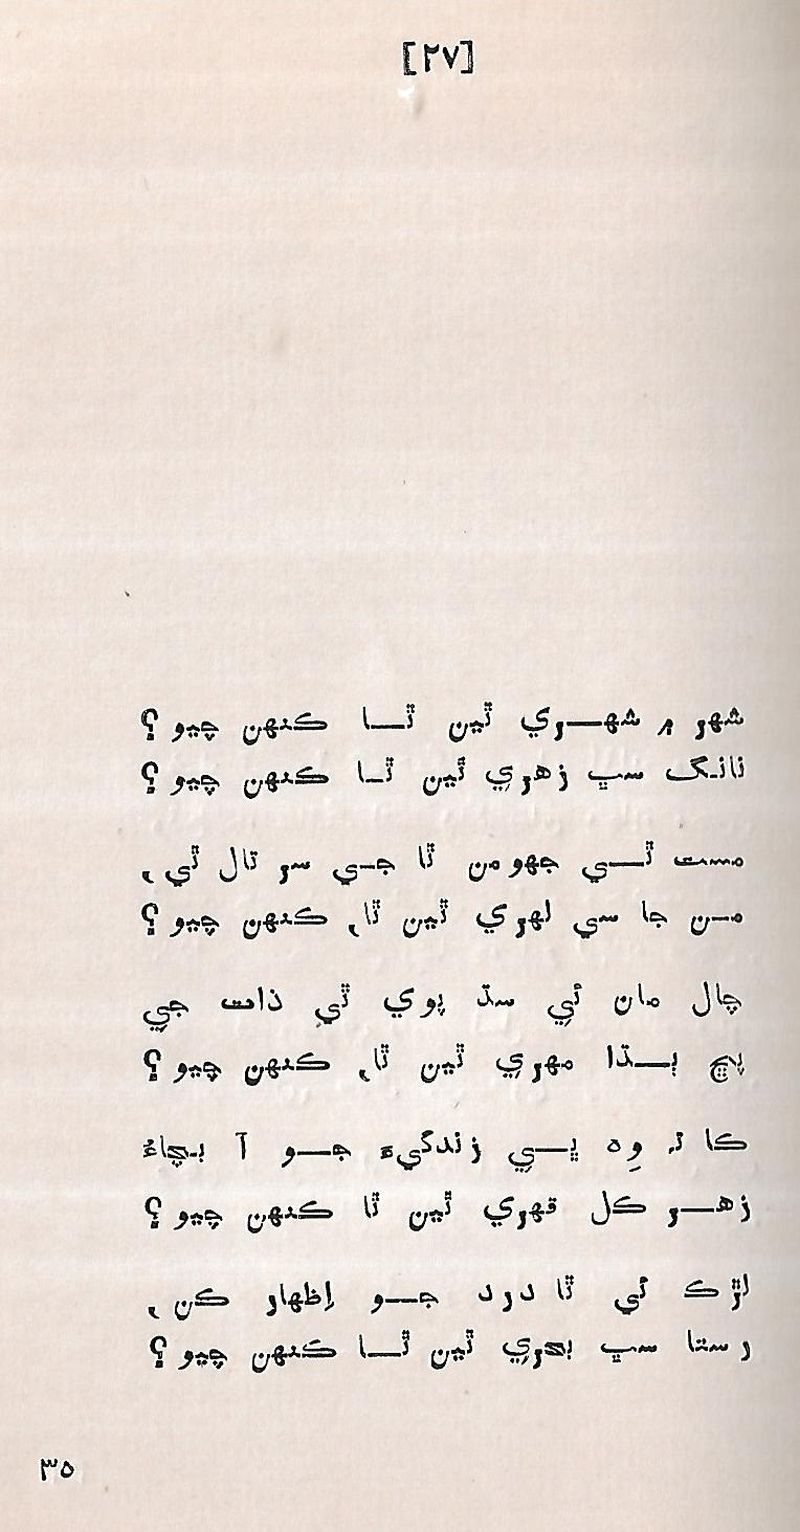 [۲۷]
شهر ۾ شهري ٿين ٿا ڪنهن چيو؟
نانگ سڀ زهري ٿين ٿا ڪنهن چيو؟
مست ٿي جهومن ٿا جي سر تال تي،
من جا سي لهري ٿين ٿا، ڪنهن چيو؟
چال مان ئي سڌ پوي ٿي ذات جي
پڇ ٻڌا مهري ٿين ٿا، ڪنهن چيو؟
ڪا نہ وِهہ پي زندگيءَ جو آ بچاءُ
زهر ڪل قهري ٿين ٿا ڪنهن چيو؟
لڙڪ ئي ٿا درد جو اِظهار ڪن،
رستا سڀ بحري ٿين ٿا ڪنهن چيو؟
۳۵